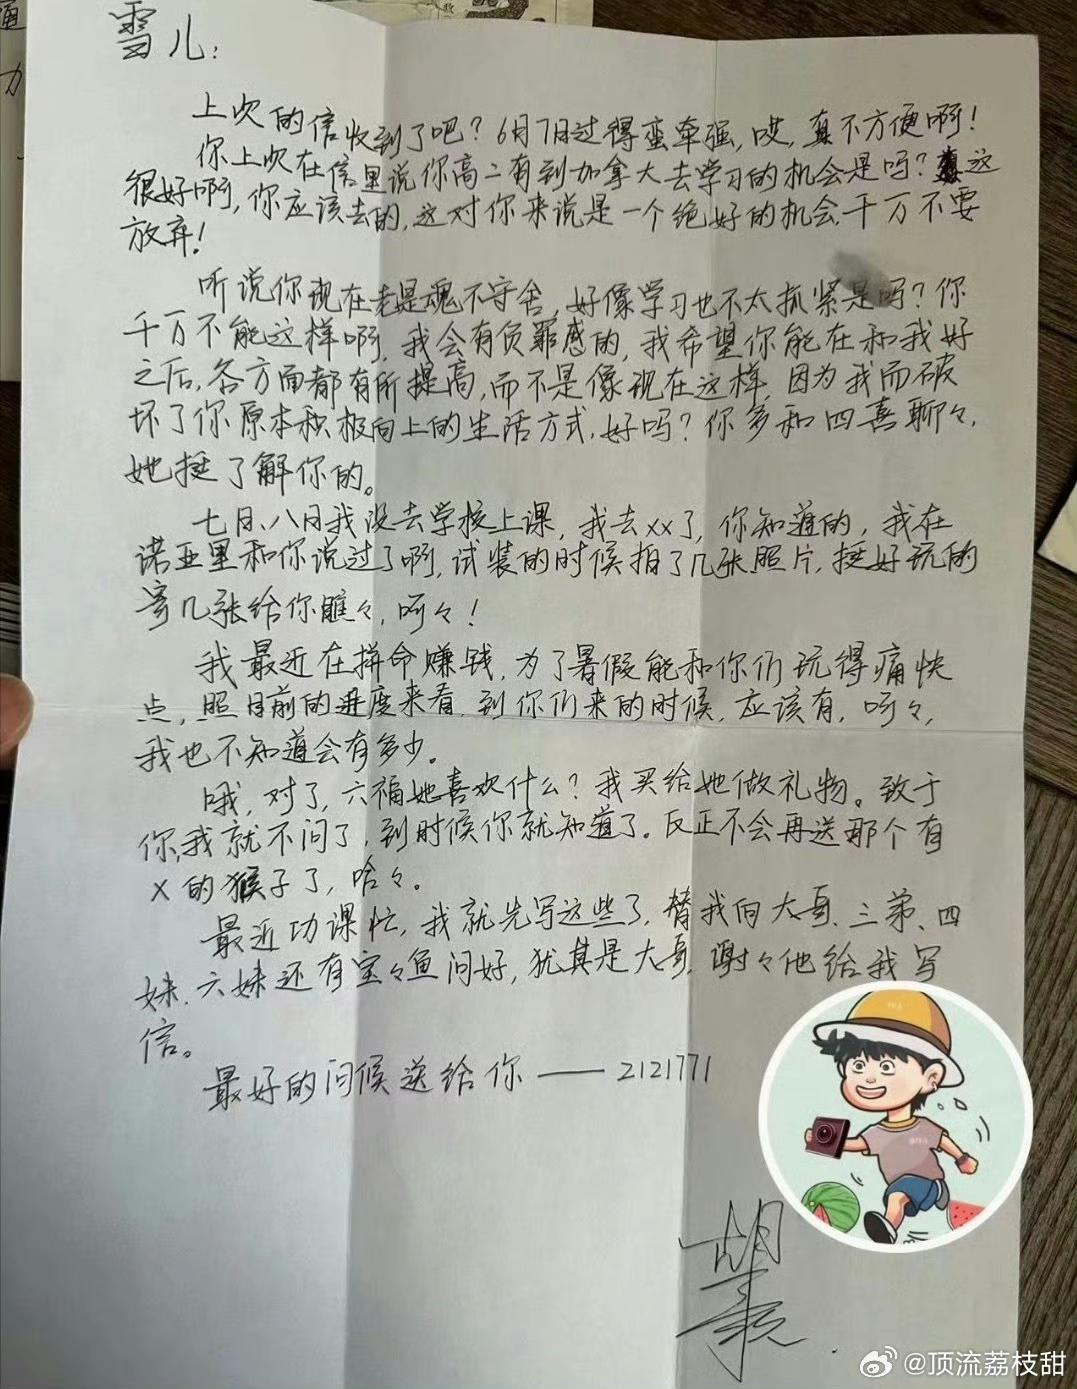 雪儿:
上次的信收到了吧?6月7月过得蛮牵强,哎,真不方便啊!
你上次在信里说你高二有到加拿大去学习的机会是吗?这
很好啊,你应该去的,这对你来说是一个绝好的机会,千万不要
放弃!
听说你现在老是魂不守舍,好像学习也不太抓紧是吗?你
千万不能这样啊,我会有负罪感的,我希望你能在和我好
之后,各方面都有所提高,而不是像现在这样,因为我而破
坏了你原本积极向上的生活方式,好吗?你多和四喜聊々,
她挺了解你的。
七月、八月我没去学校上课,我去xx了,你知道的,我在
诺亚里和你说过了啊,试装的时候拍了几张照片,挺好玩的
寄几张给你瞧々,呵々!
我最近在拼命赚钱,为了暑假能和你们玩得痛快
点,照目前的进度来看,到你们来的时候,应该有,呵々,
我也不知道会有多少。
哦,对了,六福她喜欢什么?我买给她做礼物。致于
你,我就不问了,到时候你就知道了。反正不会再送那个有
X的猴子了,哈々。
最近功课忙,我就先写这些了,替我向大哥、三弟、四
妹、六妹还有宝々鱼问好,犹其是大哥,谢々他给我写
信。
最好的问候送给你——2121771
胡
通
力
@顶流荔枝甜